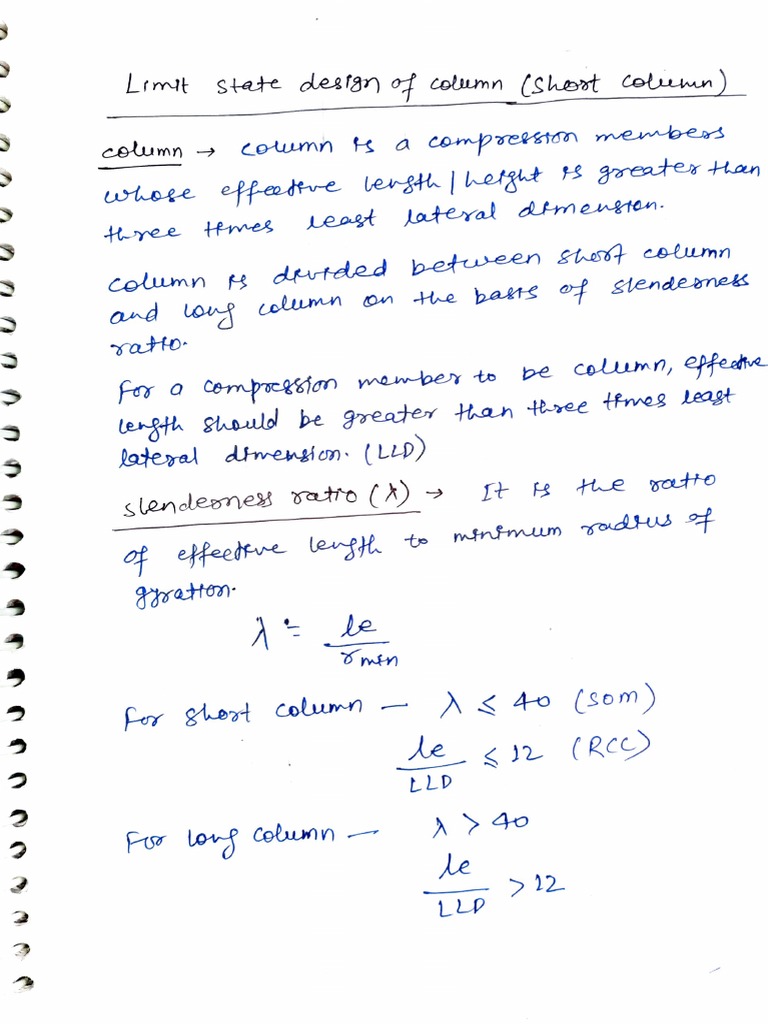 Limit state design of column (short column)
column → column is a compression members
whose effective length/height is greater than
three times least lateral dimension.
column is divided between short column
and long column on the basis of slenderness
ratio.
For a compression member to be column, effective
length should be greater than three times least
lateral dimension. (LLD)
slenderness ratio (λ) → It is the ratio
of effective length to minimum radius of
gyration.
λ = le / rmin
For short column — λ ≤ 40 (SOM)
le / LLD ≤ 12 (RCC)
For long column — λ > 40
le / LLD > 12